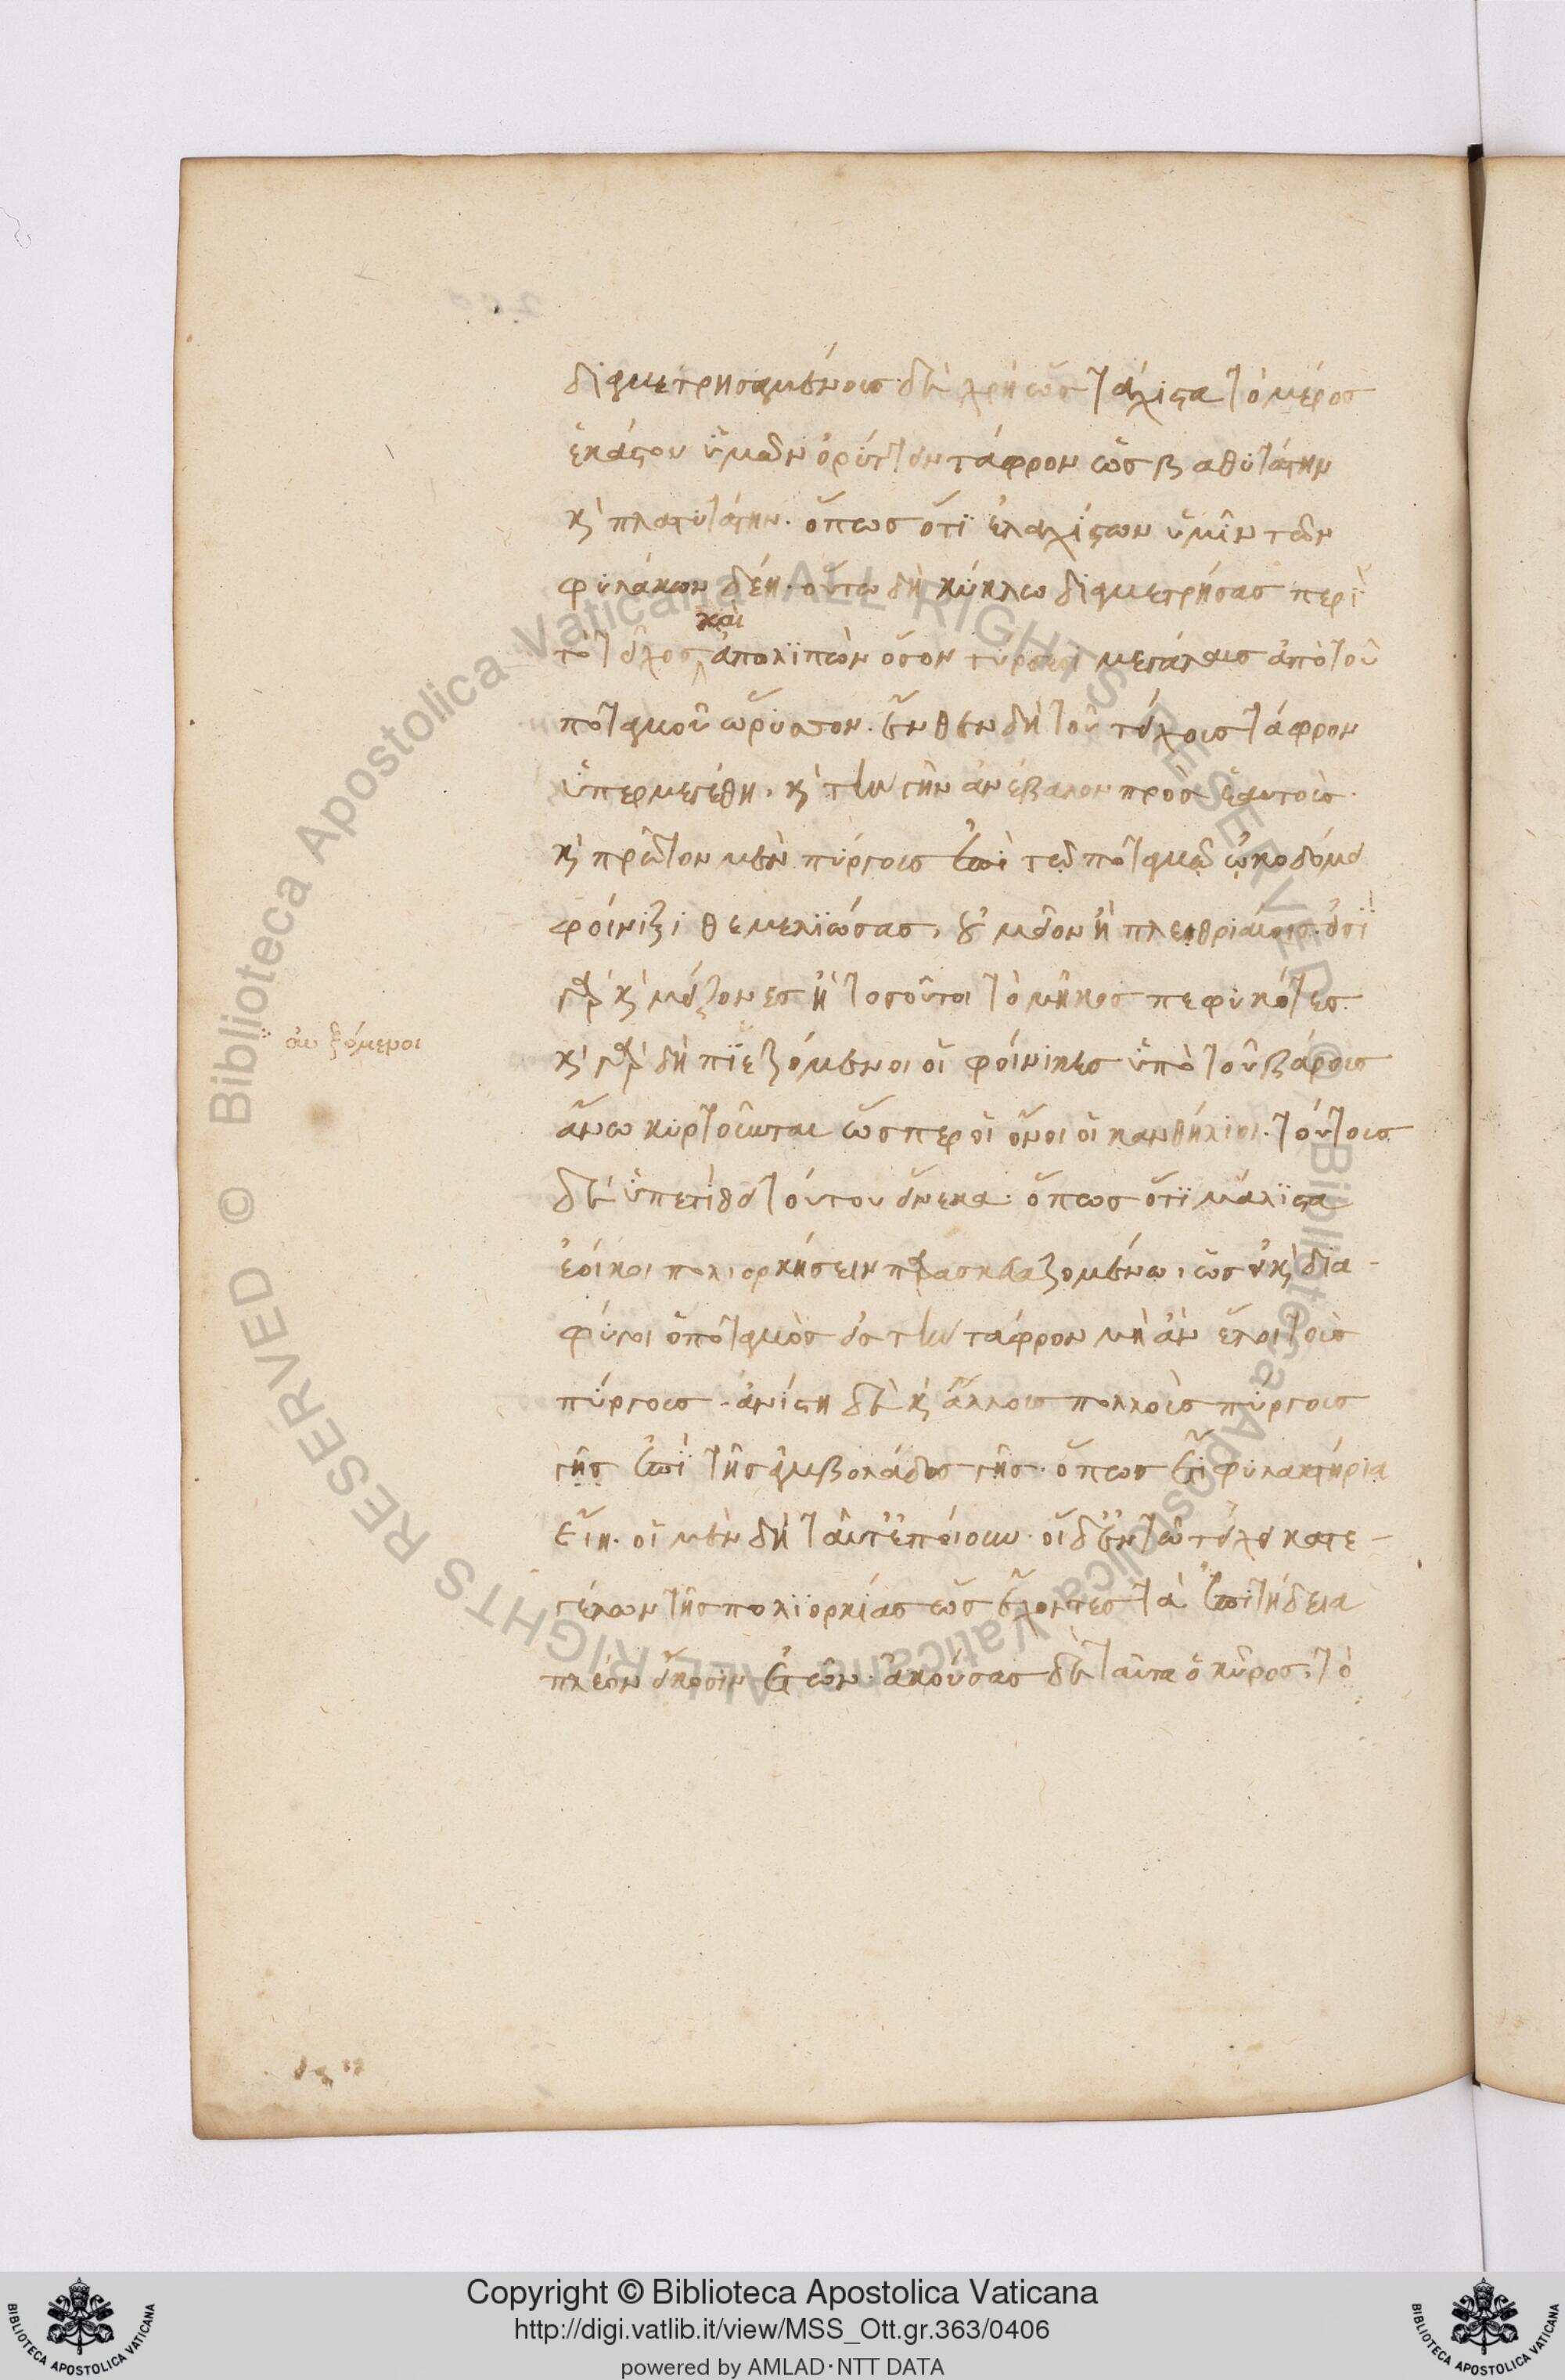 διαμετρησαμένους δὲ χρὴ ὡς τάχιστα τὸ μέρος
ἕκαστον ὑμῶν ὀρύττειν τάφρον ὡς βαθυτάτην
κὶ πλατυτάτην. ὅπως ὅτι ἐλαχίστων ὑμῖν τῶν
φυλάκων δέῃ. οὕτω δὴ κύκλω διαμετρήσας περὶ
τὸ τεῖχος καὶ ἀπολιπὼν ὅσον τύρσεσι μεγάλαις ἀπὸ τοῦ
ποταμοῦ ὤρυσσον. ἔνθεν δὴ τοῦ τείχους τάφρον
ὑπερμεγέθη. κὶ τὴν γῆν ἀνέβαλον πρὸς ἑαυτούς.
κὶ πρῶτον μὲν πύργους ἐπὶ τῷ ποταμῷ ᾠκοδόμει
φοίνιξι θεμελιώσας, οὐ μεῖον ἢ πλεθριαίοις. εἰσὶ
γὰρ κὶ μείζονες ἢ τοσοῦτοι τὸ μῆκος πεφυκότες.
κὶ γὰρ δὴ πιεζόμενοι οἱ φοίνικες ὑπὸ τοῦ βάρους
ἄνω κυρτοῦνται ὥσπερ οἱ ὄνοι οἱ κανθήλιοι. τούτους
δὲ ὑπετίθει τούτου ἕνεκα. ὅπως ὅτι μάλιστα
ἐοίκοι πολιορκήσειν παρασκευαζομένω, ὡς εἰ κὶ δια-
φύγοι ὁ ποταμὸς εἰς τὴν τάφρον μὴ ἂν ἕλοι τοὺς
πύργους. ἀνίστη δὲ κὶ ἄλλους πολλοὺς πύργους
γῆς ἐπὶ τῆς ἀμβολάδος γῆς. ὅπως ὅτι φυλακτήρια
εἴη. οἱ μὲν δὴ ταῦτ' ἐποίουν. οἱ δ' ἐν τῷ τείχει κατε-
γέλων τῆς πολιορκίας ὡς ἔχοντες τὰ ἐπιτήδεια
πλέον εἴκοσιν ἐτῶν. ἀκούσας δὲ ταῦτα ὁ κῦρος, τὸ
αὐξόμενοι
Copyright © Biblioteca Apostolica Vaticana
http://digi.vatlib.it/view/MSS_Ott.gr.363/0406
powered by AMLAD·NTT DATA
BIBLIOTECA APOSTOLICA VATICANA
BIBLIOTECA APOSTOLICA VATICANA
© Biblioteca Apostolica Vaticana ALL RIGHTS RESERVED © Biblioteca Apostolica Vaticana ALL RIGHTS RESERVED